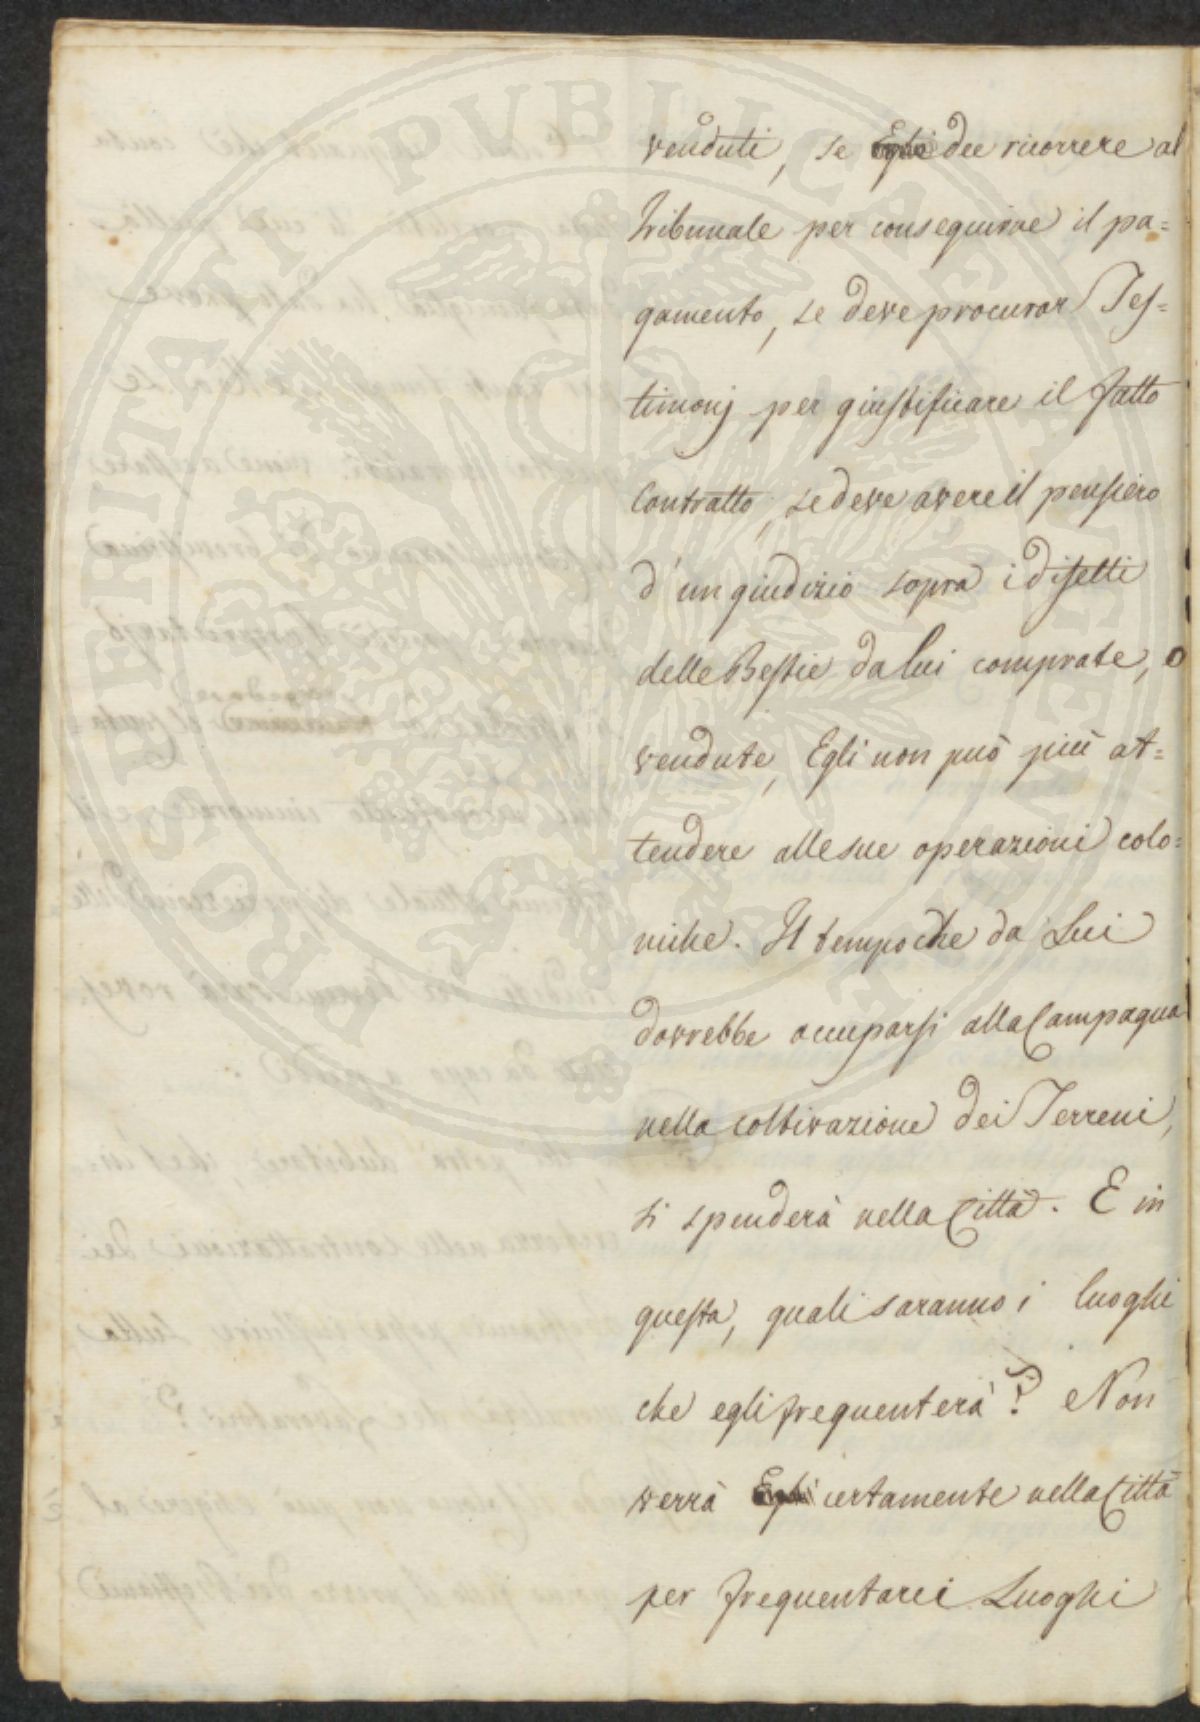 PROSPERITATI PUBLICAE AUGENDAE
venduti, se Egli dee ricorrere al
Tribunale per conseguirne il pa=
gamento, se deve procurar Tes=
timonj per giustificare il fatto
Contratto, se deve avere il pensiero
d'un giudizio sopra i difetti
delle Bestie da lui comprate, o
vendute, Egli non può più at=
tendere alle sue operazioni colo=
niche. Il tempo che da Lui
dovrebbe occuparsi alla Campagna
nella coltivazione dei Terreni,
si spenderà nella Città. E in
questa, quali saranno i luoghi
che egli frequenterà? Non
verrà Egli certamente nella Città
per frequentarci Luoghi